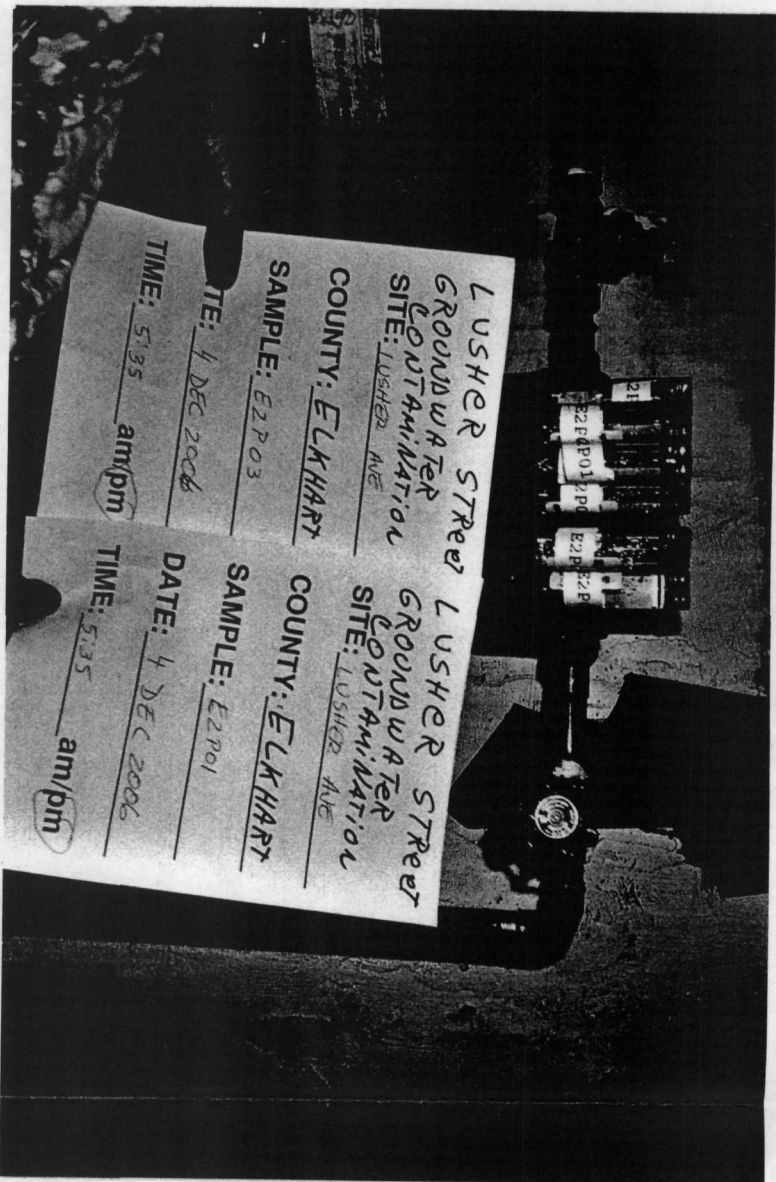 LUSHER STREET
GROUNDWATER
CONTAMINATION
SITE: LUSHER AVE
COUNTY: ELKHART
SAMPLE: E2P03
TE: 4 DEC 2006
TIME: 5:35 am/pm
LUSHER STREET
GROUNDWATER
CONTAMINATION
SITE: LUSHER AVE
COUNTY: ELKHART
SAMPLE: E2P01
DATE: 4 DEC 2006
TIME: 5:35 am/pm
E2P
E2P0
P01
2P0
E2P
E2P